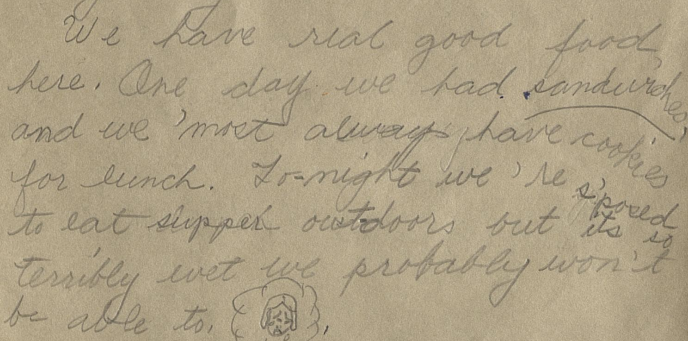 We have real good food
here. One day we had sandwiches,
and we 'most always have cookies
for lunch. To-night we're s'posed
to eat supper outdoors but its so
terribly wet we probably won't
be able to.